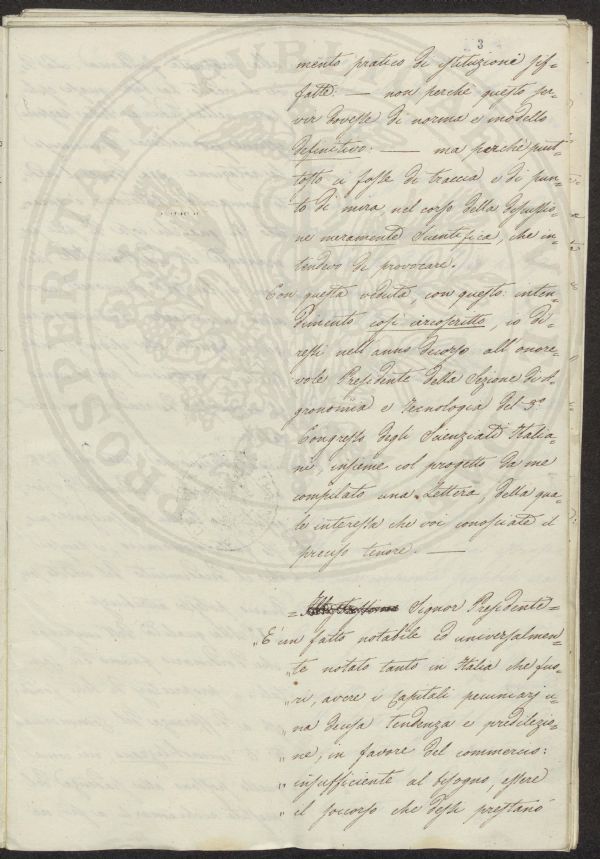 3
mento pratico di istituzioni sif-
fatte: — non perchè questo ser-
vir dovesse di norma e modello
definitivo. — ma perchè piut-
tosto ci fosse di traccia e di pun-
to di mira, nel corso della discussio-
ne meramente scientifica, che in-
tendevo di provocare.
Con questa veduta, con questo inten-
dimento così circoscritto, io di-
ressi nell'anno decorso all'onore-
vole Presidente della Sezione di A-
gronomia e Tecnologia del 3.°
Congresso degli Scienziati Italia-
ni, insieme col progetto da me
compilato una Lettera, della qua-
le interessa che voi conosciate il
preciso tenore. —
= Signor Presidente =
„ È un fatto notabile ed universalmen-
„ te notato tanto in Italia che fuo-
„ ri, avere i Capitali pecuniarj u-
„ na decisa tendenza e predilezio-
„ ne, in favore del commercio:
„ insufficiente al bisogno, essere
„ il soccorso che dessi prestano
PROSPERITATI PUBLICAE